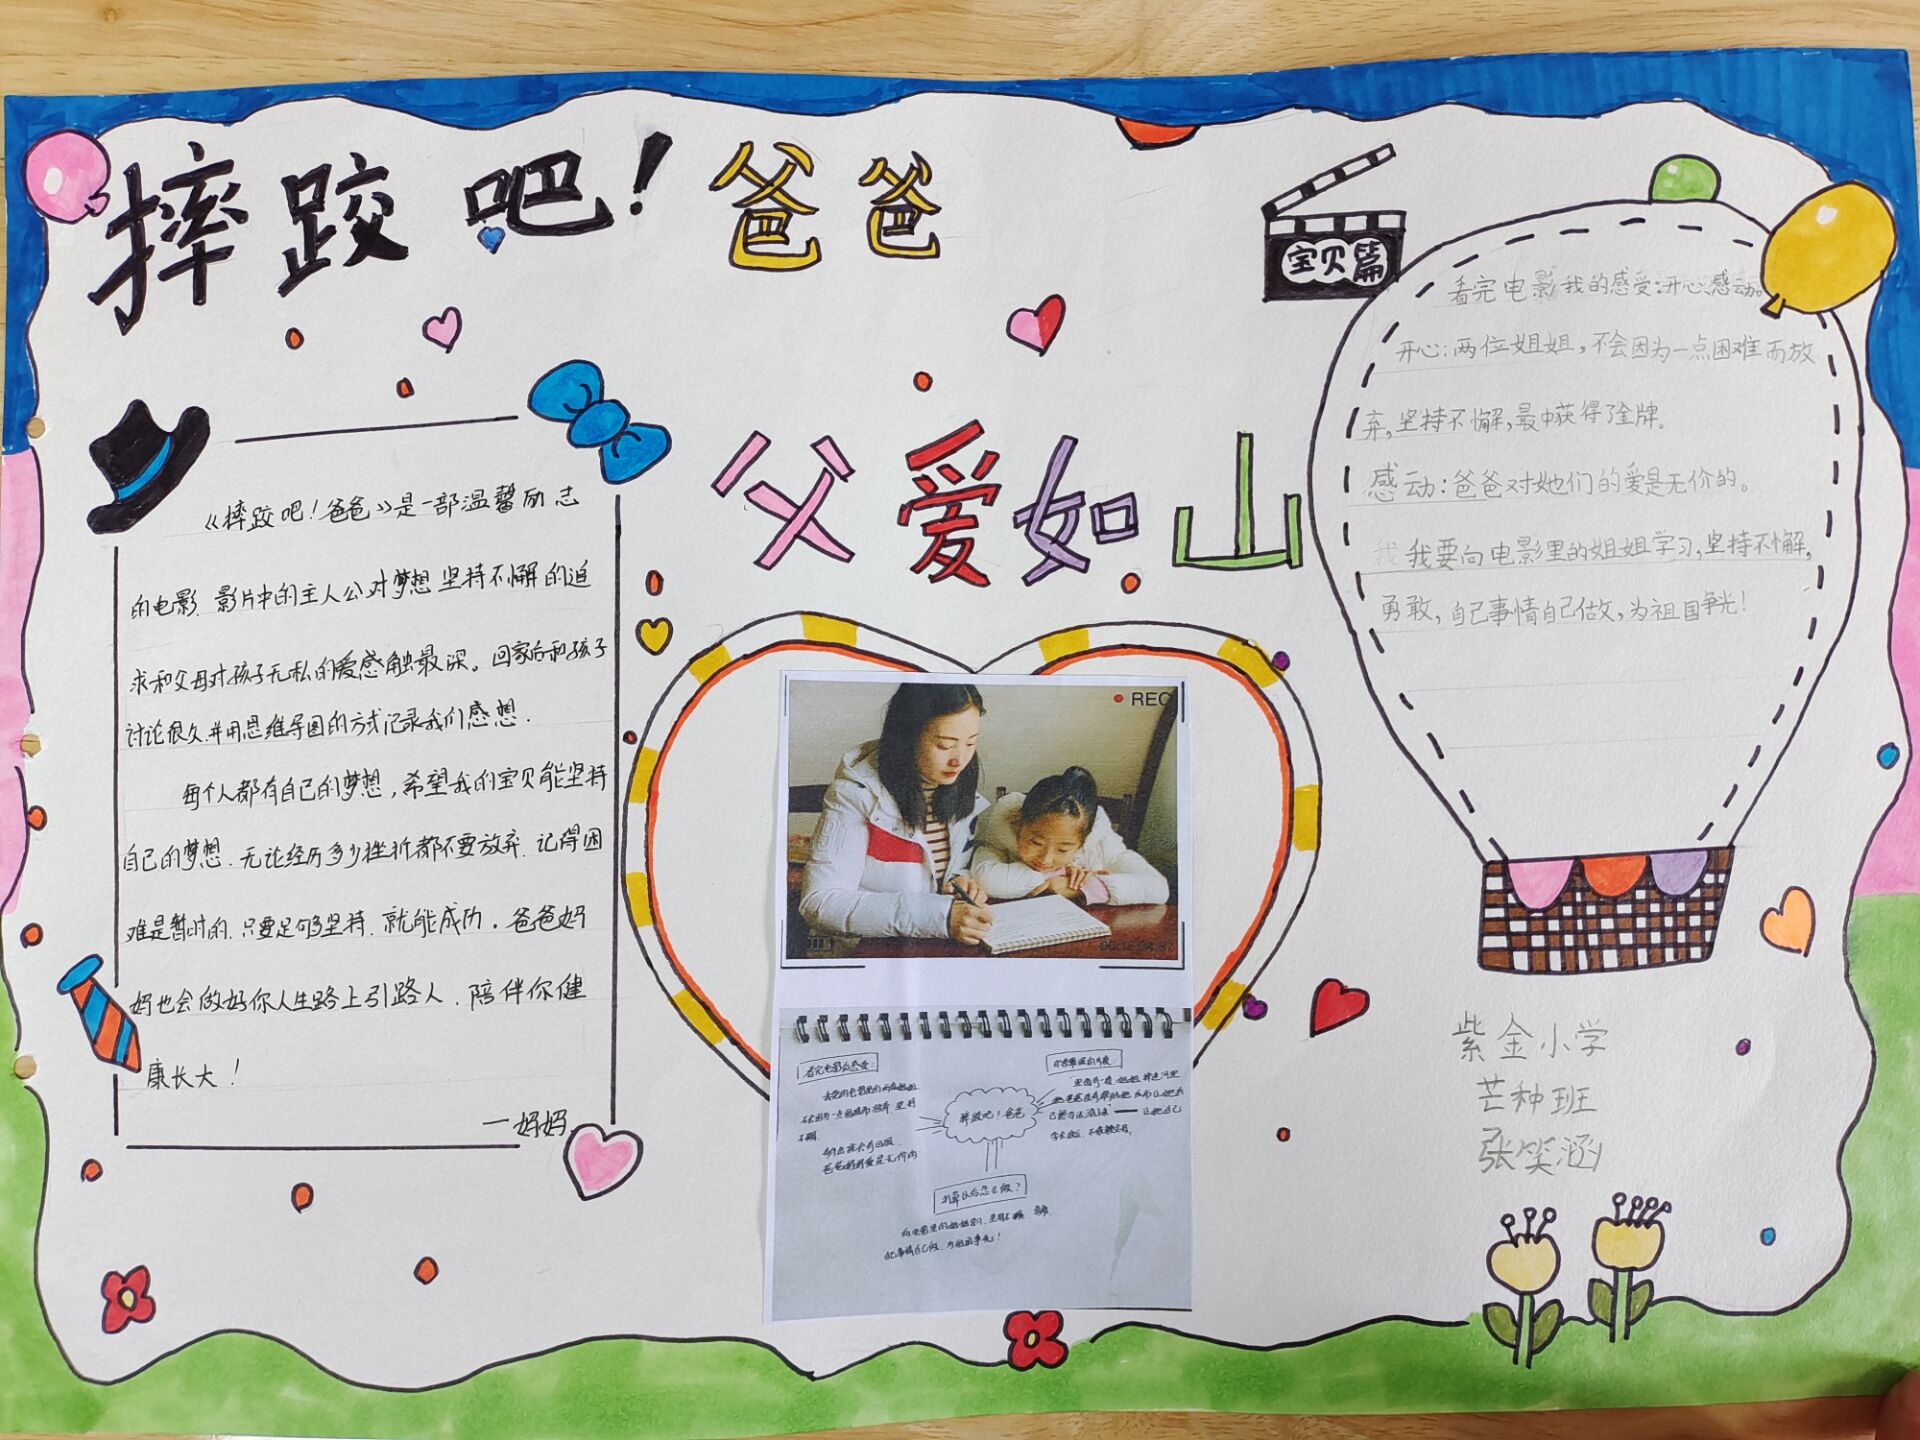 摔跤吧！爸爸
父爱如山
《摔跤吧！爸爸》是一部温馨励志
的电影.影片中的主人公对梦想坚持不懈的追
求和父母对孩子无私的爱感触最深。回家后和孩子
讨论很久.并用思维导图的方式记录我们感想.
每个人都有自己的梦想,希望我的宝贝能坚持
自己的梦想.无论经历多少挫折都不要放弃.记得困
难是暂时的.只要足够坚持.就能成功。爸爸妈
妈也会做好你人生路上引路人.陪伴你健
康长大！
—妈妈
REC
摔跤吧！爸爸
宝贝篇
看完电影我的感受:开心.感动。
开心:两位姐姐,不会因为一点困难而放
弃,坚持不懈,最中获得了金牌。
感动:爸爸对她们的爱是无价的。
我要向电影里的姐姐学习,坚持不懈,
勇敢,自己事情自己做,为祖国争光!
紫金小学
芒种班
张笑涵